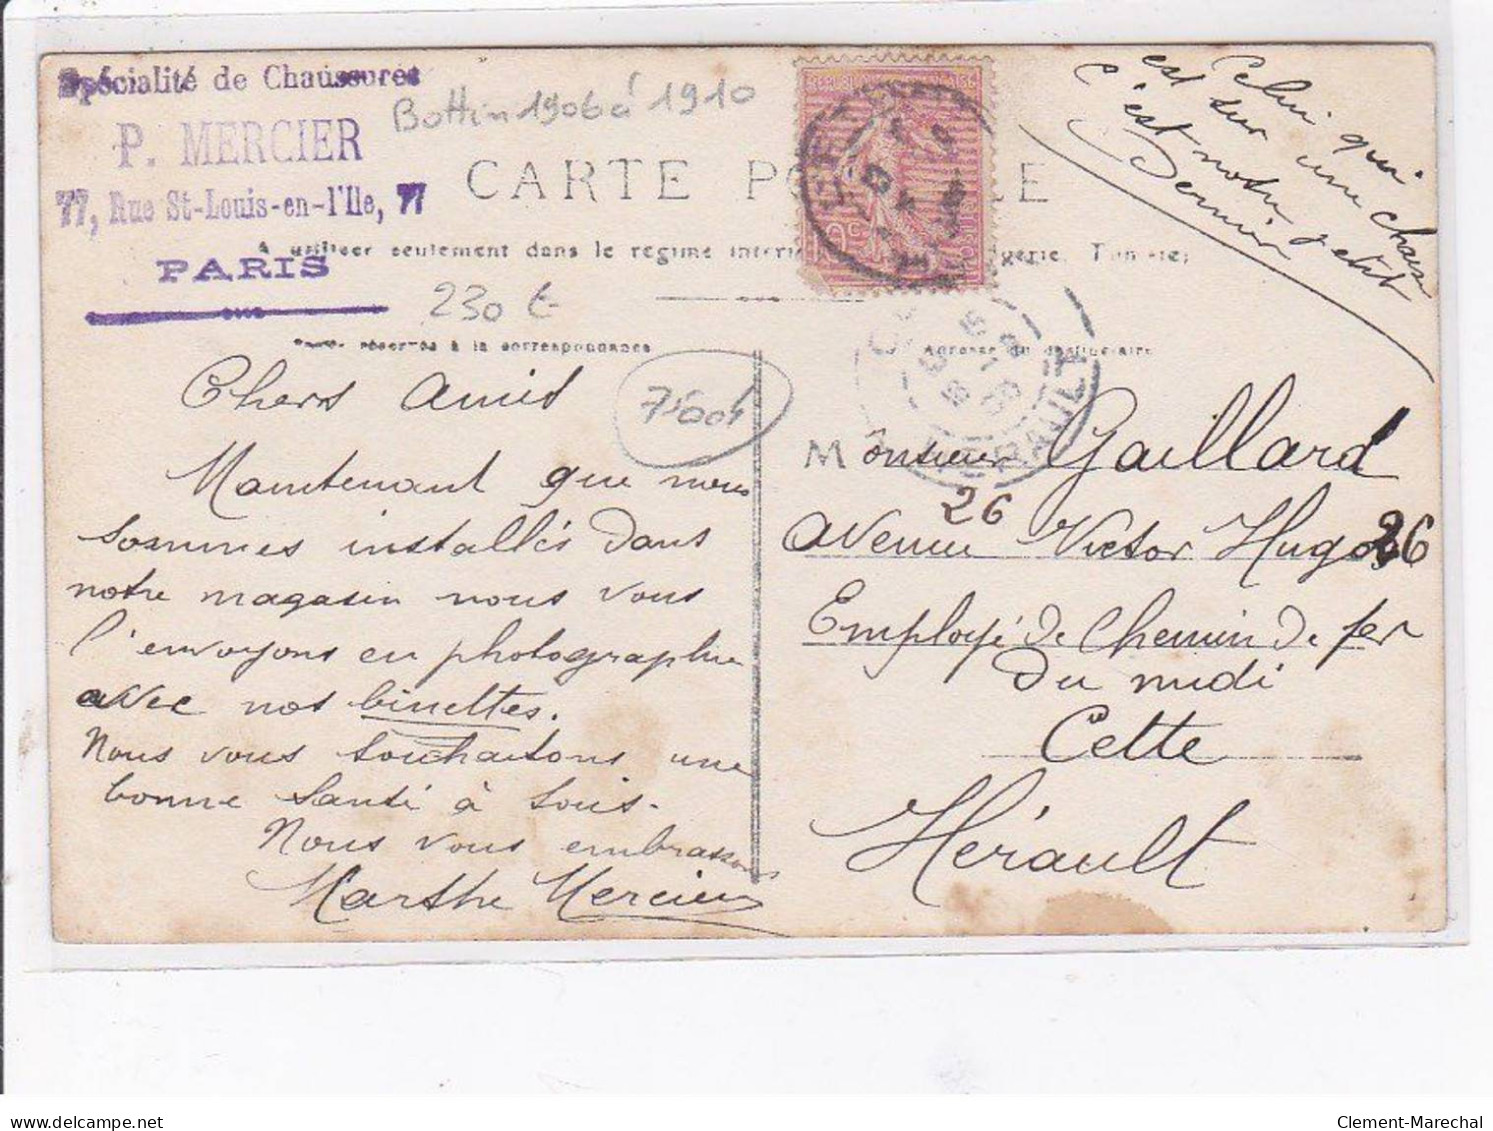 Spécialité de Chaussures
P. MERCIER
77, Rue St-Louis-en-l'Ile, 77
PARIS
Bottin 1906 à 1910
CARTE PO RE
A utiliser seulement dans le régime interi gérie, Tunisie;
230 €
réservée à la correspondance
Adresse du destinataire
Celui qui
est sur une chaise
c'est notre petit
Dernier
Chers Amis
Maintenant que nous
sommes installés dans
notre magasin nous vous
l'envoyons en photographie
avec nos binettes.
Nous vous souhaitons une
bonne Santé à tous.
Nous vous embrassons
Marthe Mercier
Monsieur Gaillard
26
Avenue Victor Hugo 26
Employé de Chemin de fer
du midi
Cette
Hérault
HÉRAULT
Clement-Marechal